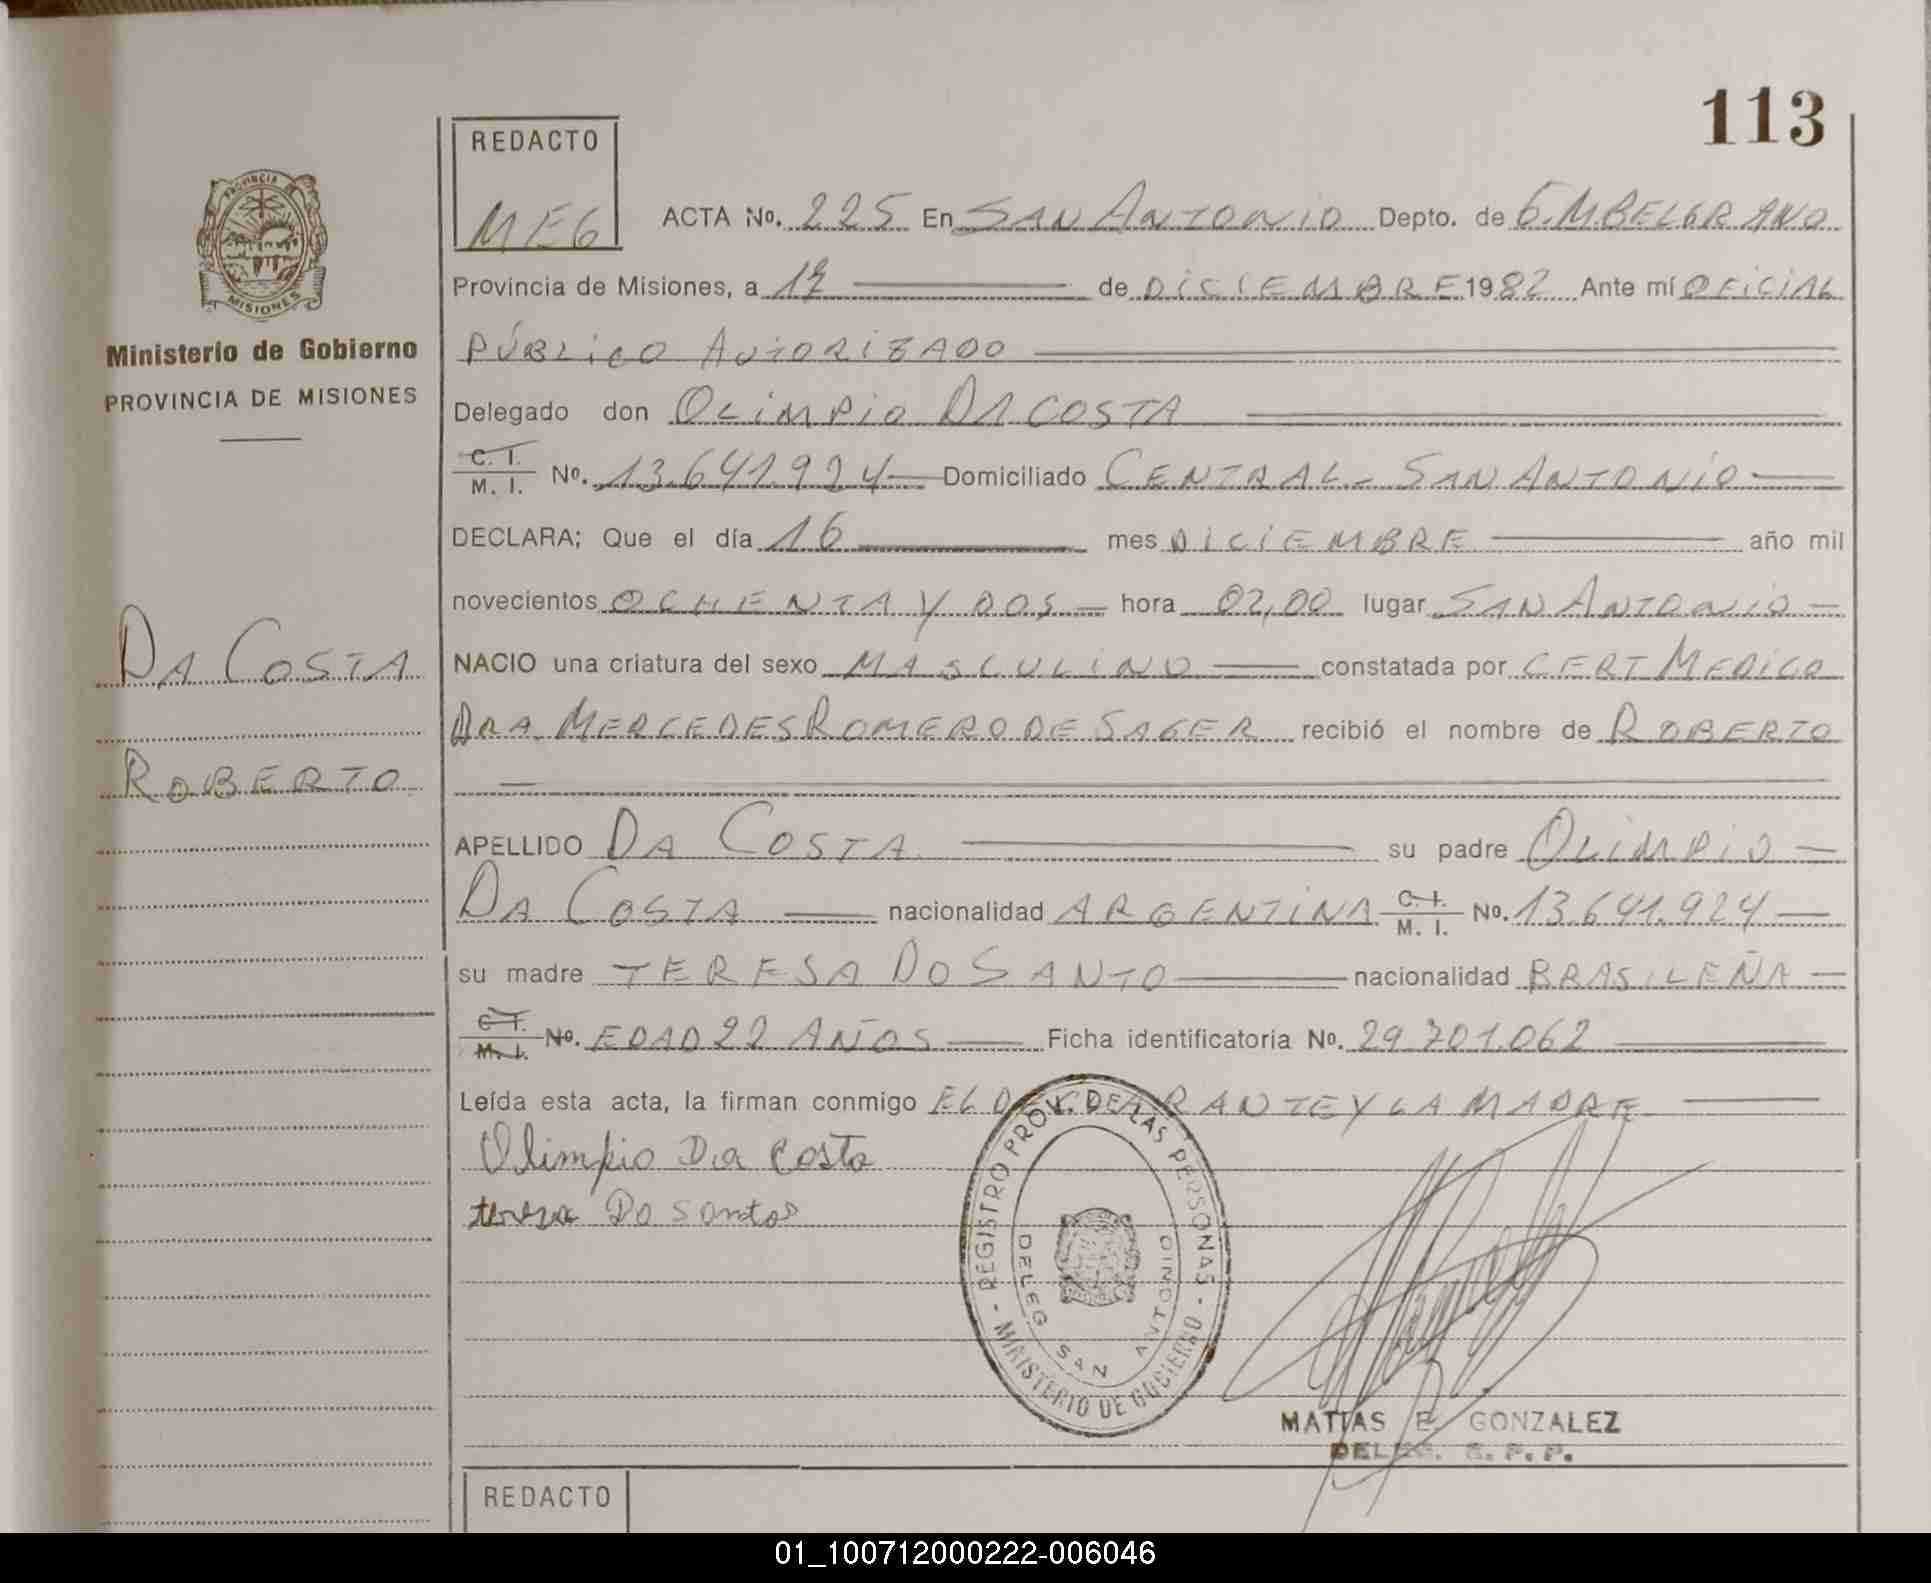 113
REDACTO
MEG
ACTA No. 225 En SAN ANTONIO Depto. de G.M.BELGRANO
Provincia de Misiones, a 17 de DICIEMBRE 1982 Ante mí OFICIAL
PÚBLICO AUTORIZADO
Delegado don OLIMPIO DA COSTA
C. I.
M. I. No. 13.641.924 Domiciliado CENTRAL - SAN ANTONIO
DECLARA; Que el día 16 mes DICIEMBRE año mil
novecientos OCHENTA Y DOS hora 02,00 lugar SAN ANTONIO
NACIO una criatura del sexo MASCULINO constatada por CERT MEDICO
DRA. MERCEDES ROMERO DE SAGER recibió el nombre de ROBERTO
APELLIDO DA COSTA su padre OLIMPIO
DA COSTA nacionalidad ARGENTINA C. I. M. I. No. 13.641.924
su madre TERESA DO SANTO nacionalidad BRASILEÑA
C. I.
M. I. No. EDAD 22 AÑOS Ficha identificatoria No. 29.701.062
Leída esta acta, la firman conmigo EL DECLARANTE Y LA MADRE
Olimpio Da Costa
tereza Do santos
REGISTRO PROV. DE LAS PERSONAS - MINISTERIO DE GOBIERNO -
DELEG SAN ANTONIO
MATIAS E. GONZALEZ
DELEG. R. P. P.
REDACTO
PROVINCIA
MISIONES
Ministerio de Gobierno
PROVINCIA DE MISIONES
DA COSTA
ROBERTO
01_100712000222-006046